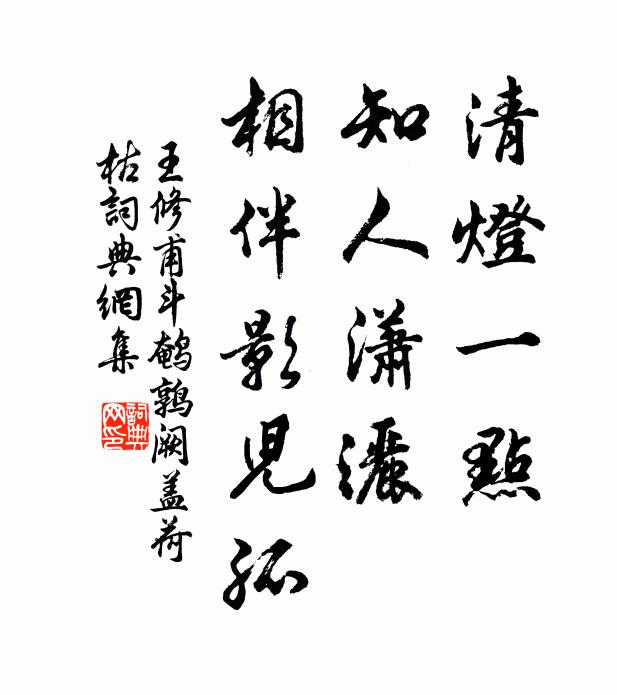 清燈一點
知人瀟灑
相伴影兒孤
王修甫斗鵪鶉闕盖荷
枯詞典網集
詞典网印